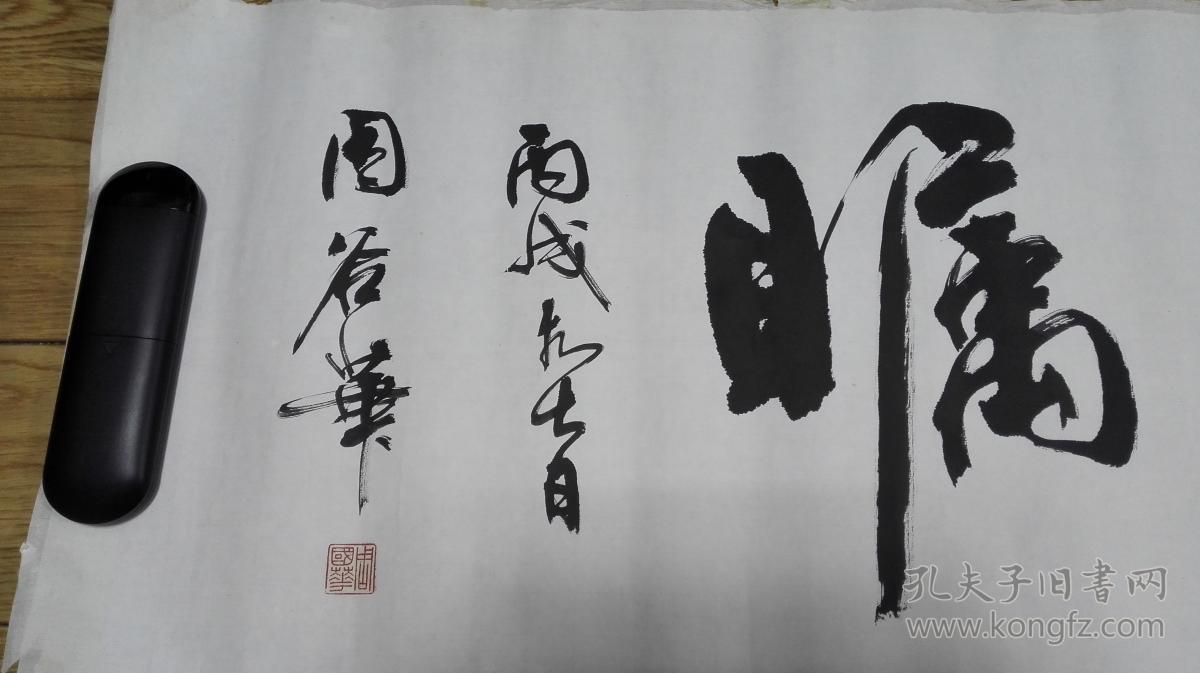 瞩
丙戌七月
周谷華
周國華
孔夫子旧书网
www.kongfz.com